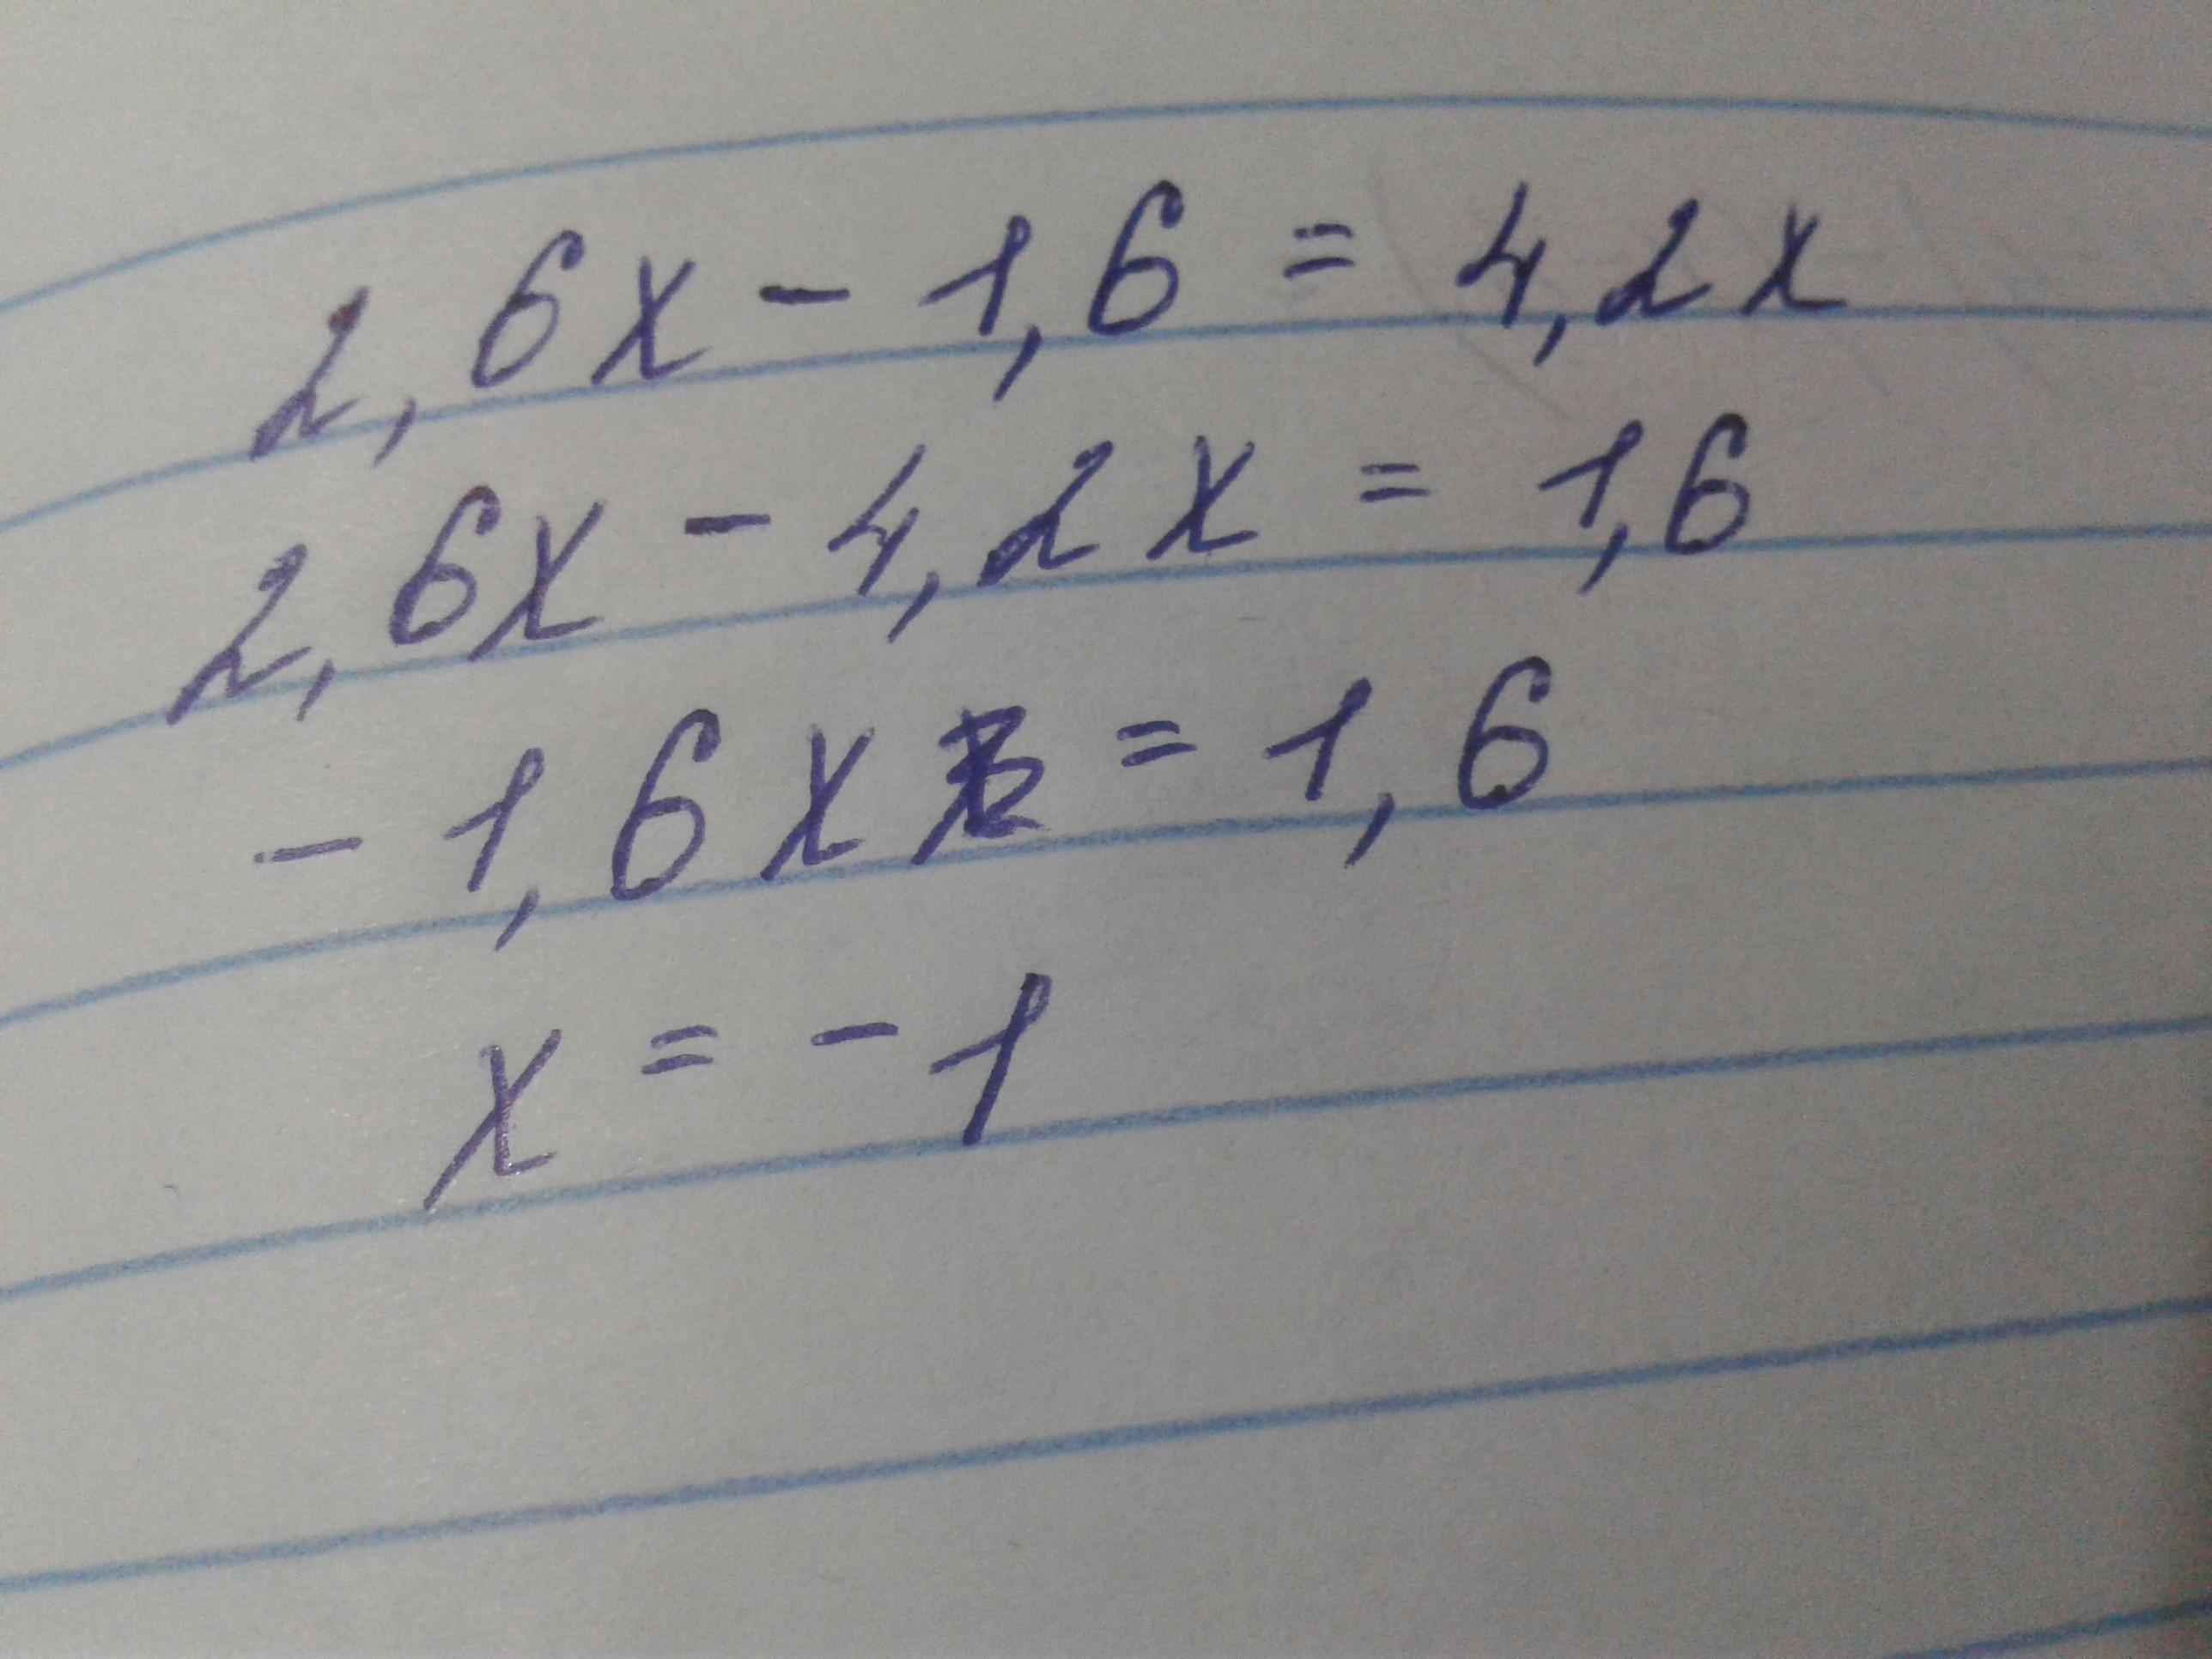 2,6x - 1,6 = 4,2x
2,6x - 4,2x = 1,6
- 1,6x = 1,6
x = - 1